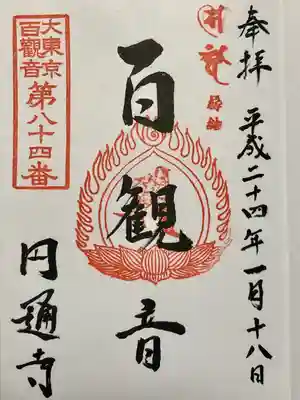 奉拝
平成二十四年一月十八日
百観音
大東京
百觀音
第八十四番
円通寺